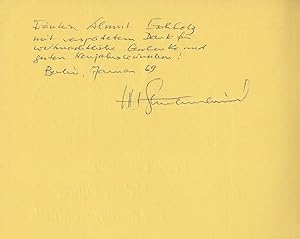 Fräulein Almut Eschholz
mit verspätetem Dank für
weihnachtliche Geschenke und
guten Neujahrswünschen!
Berlin, Januar 69